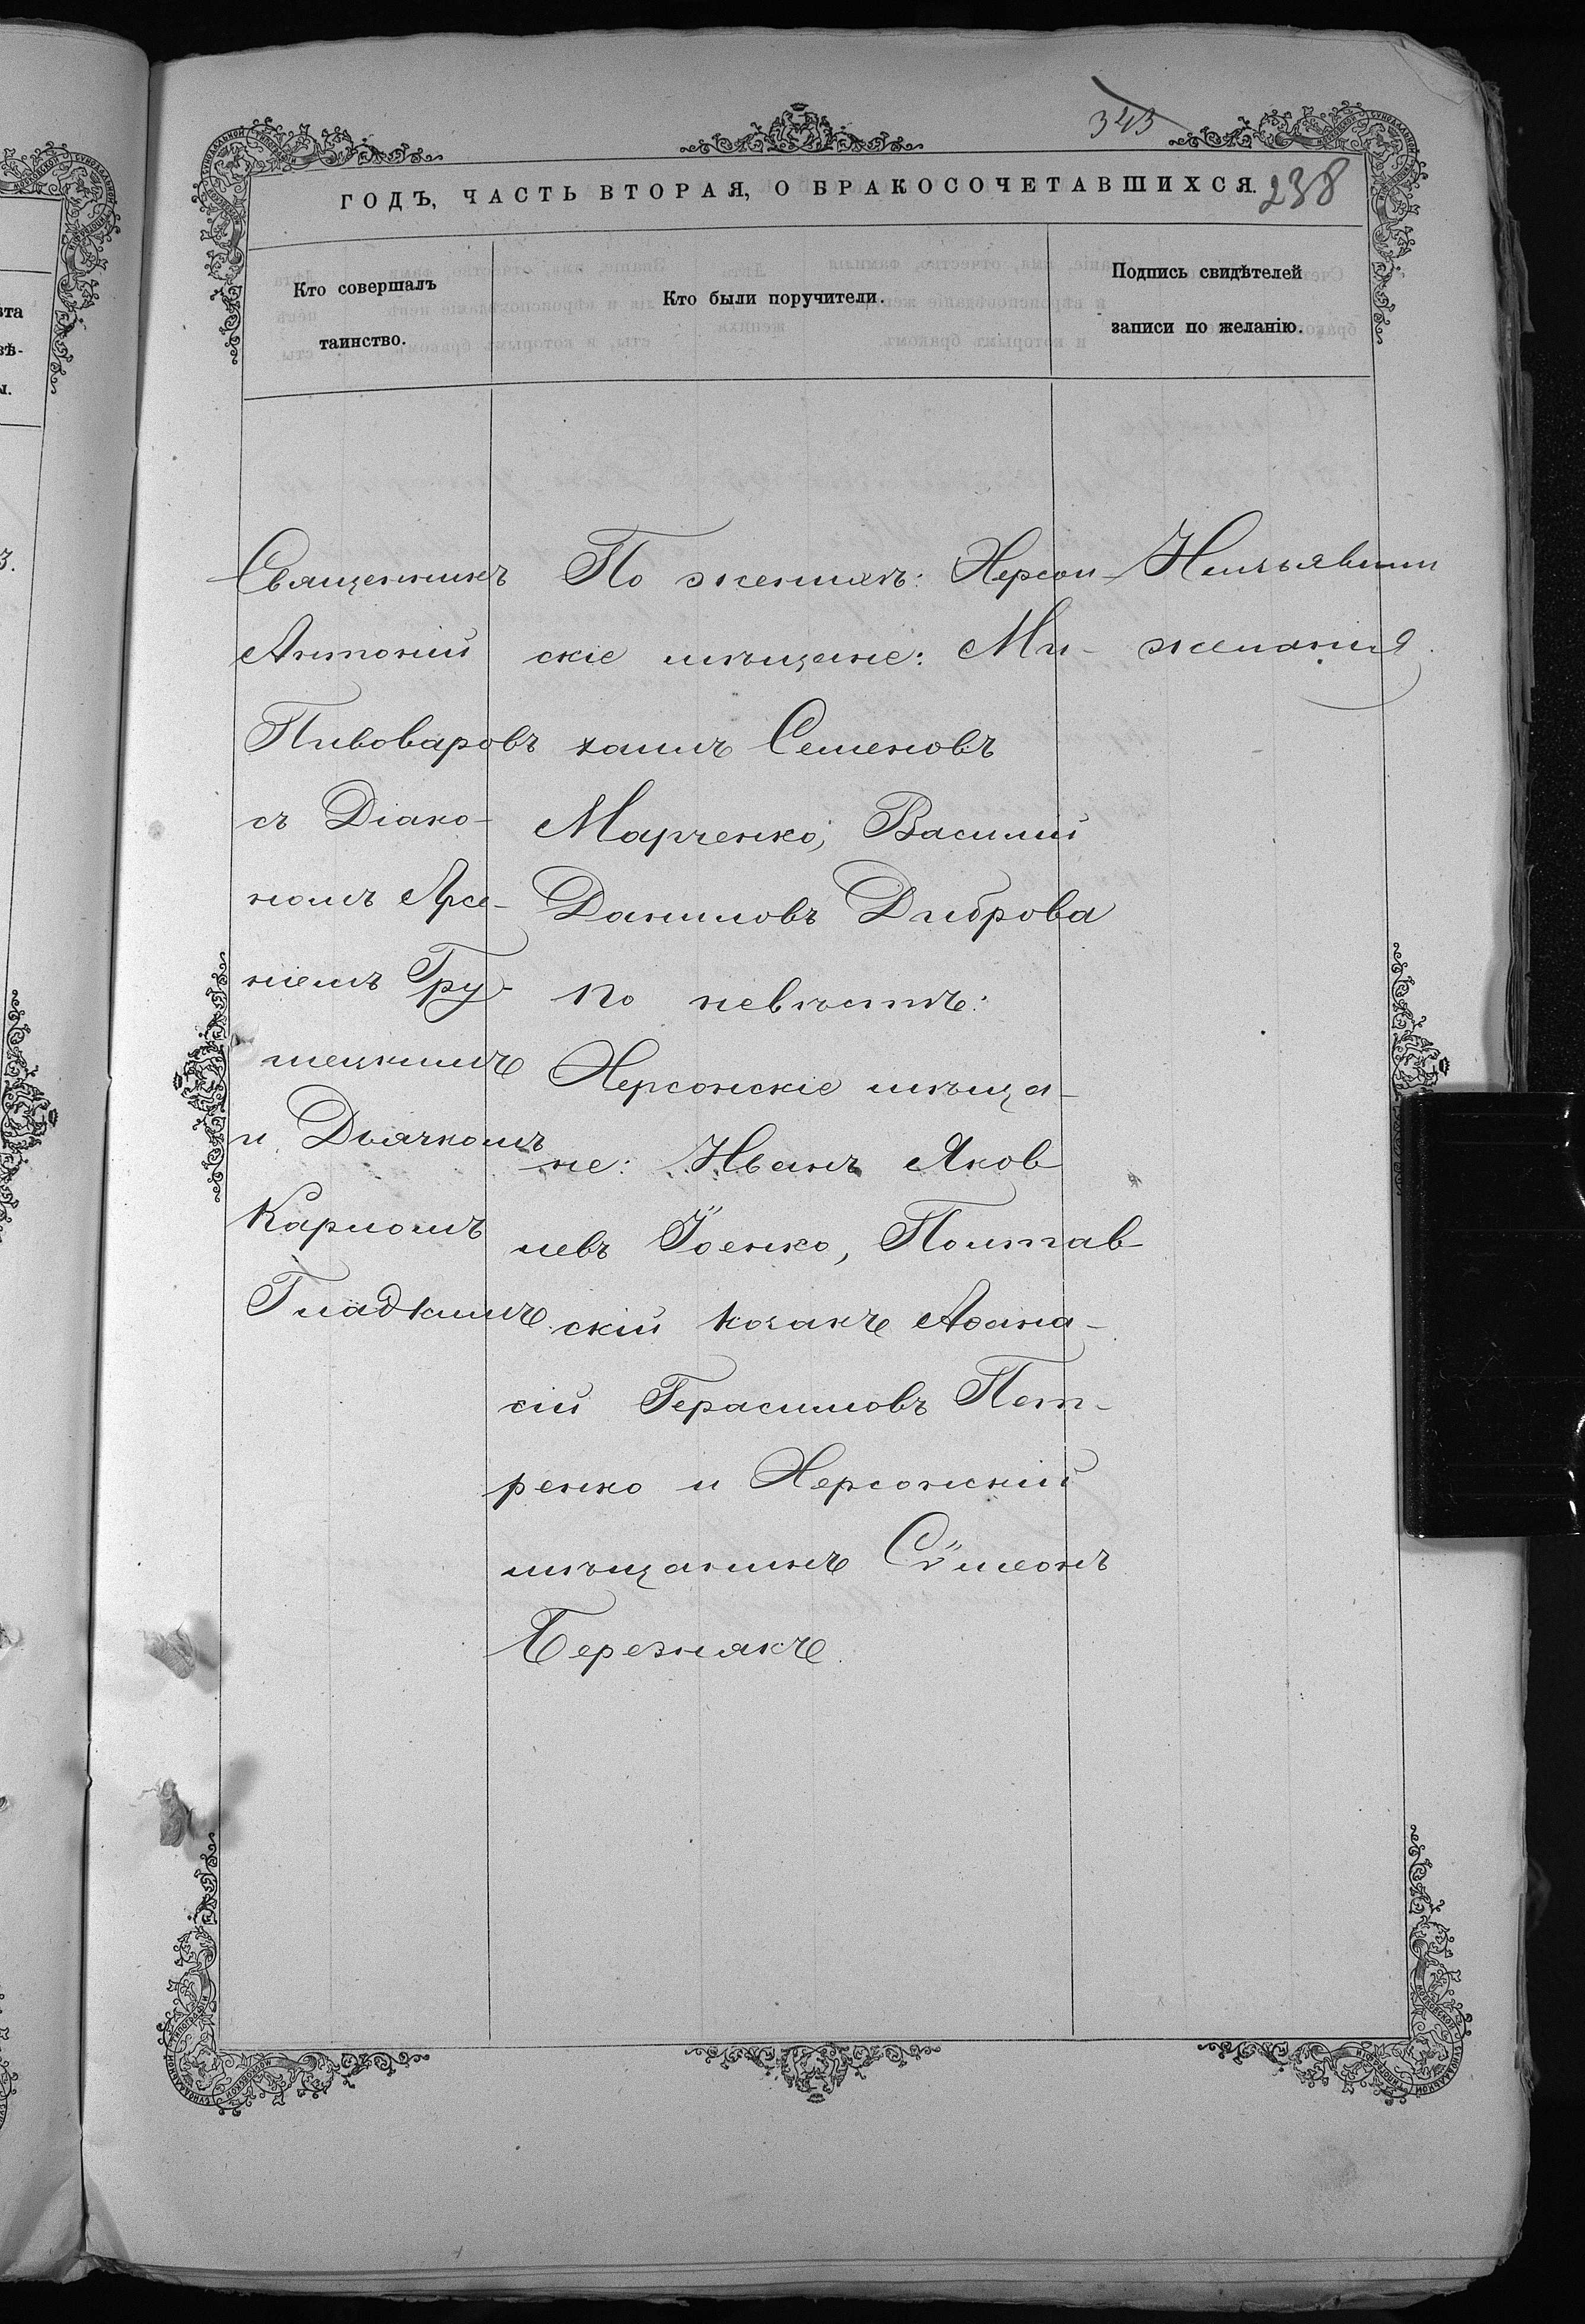 343
ГОДЪ, ЧАСТЬ ВТОРАЯ, О БРАКОСОЧЕТАВШИХСЯ.
238
Кто совершалъ
таинство.
Кто были поручители.
Подпись свидѣтелей
записи по желанію.
Священникъ
Антоній
Пивоваровъ
съ Діако-
номъ Арсе-
ніемъ Гру-
шецкимъ
и Дьячкомъ
Карпомъ
Гладкимъ.
По женихѣ: Херсон-
скіе мѣщане: Ми-
хаилъ Семеновъ
Марченко, Василій
Даниловъ Диброва
по невѣстѣ:
Херсонскіе мѣща-
не: Иванъ Яков-
левъ Ѵоенко, Полтав-
скій козакъ Аѳана-
сій Герасимовъ Пет-
ренко и Херсонскій
мѣщанинъ Сѵмеонъ
Березнякъ.
Неизъявили
желанія.